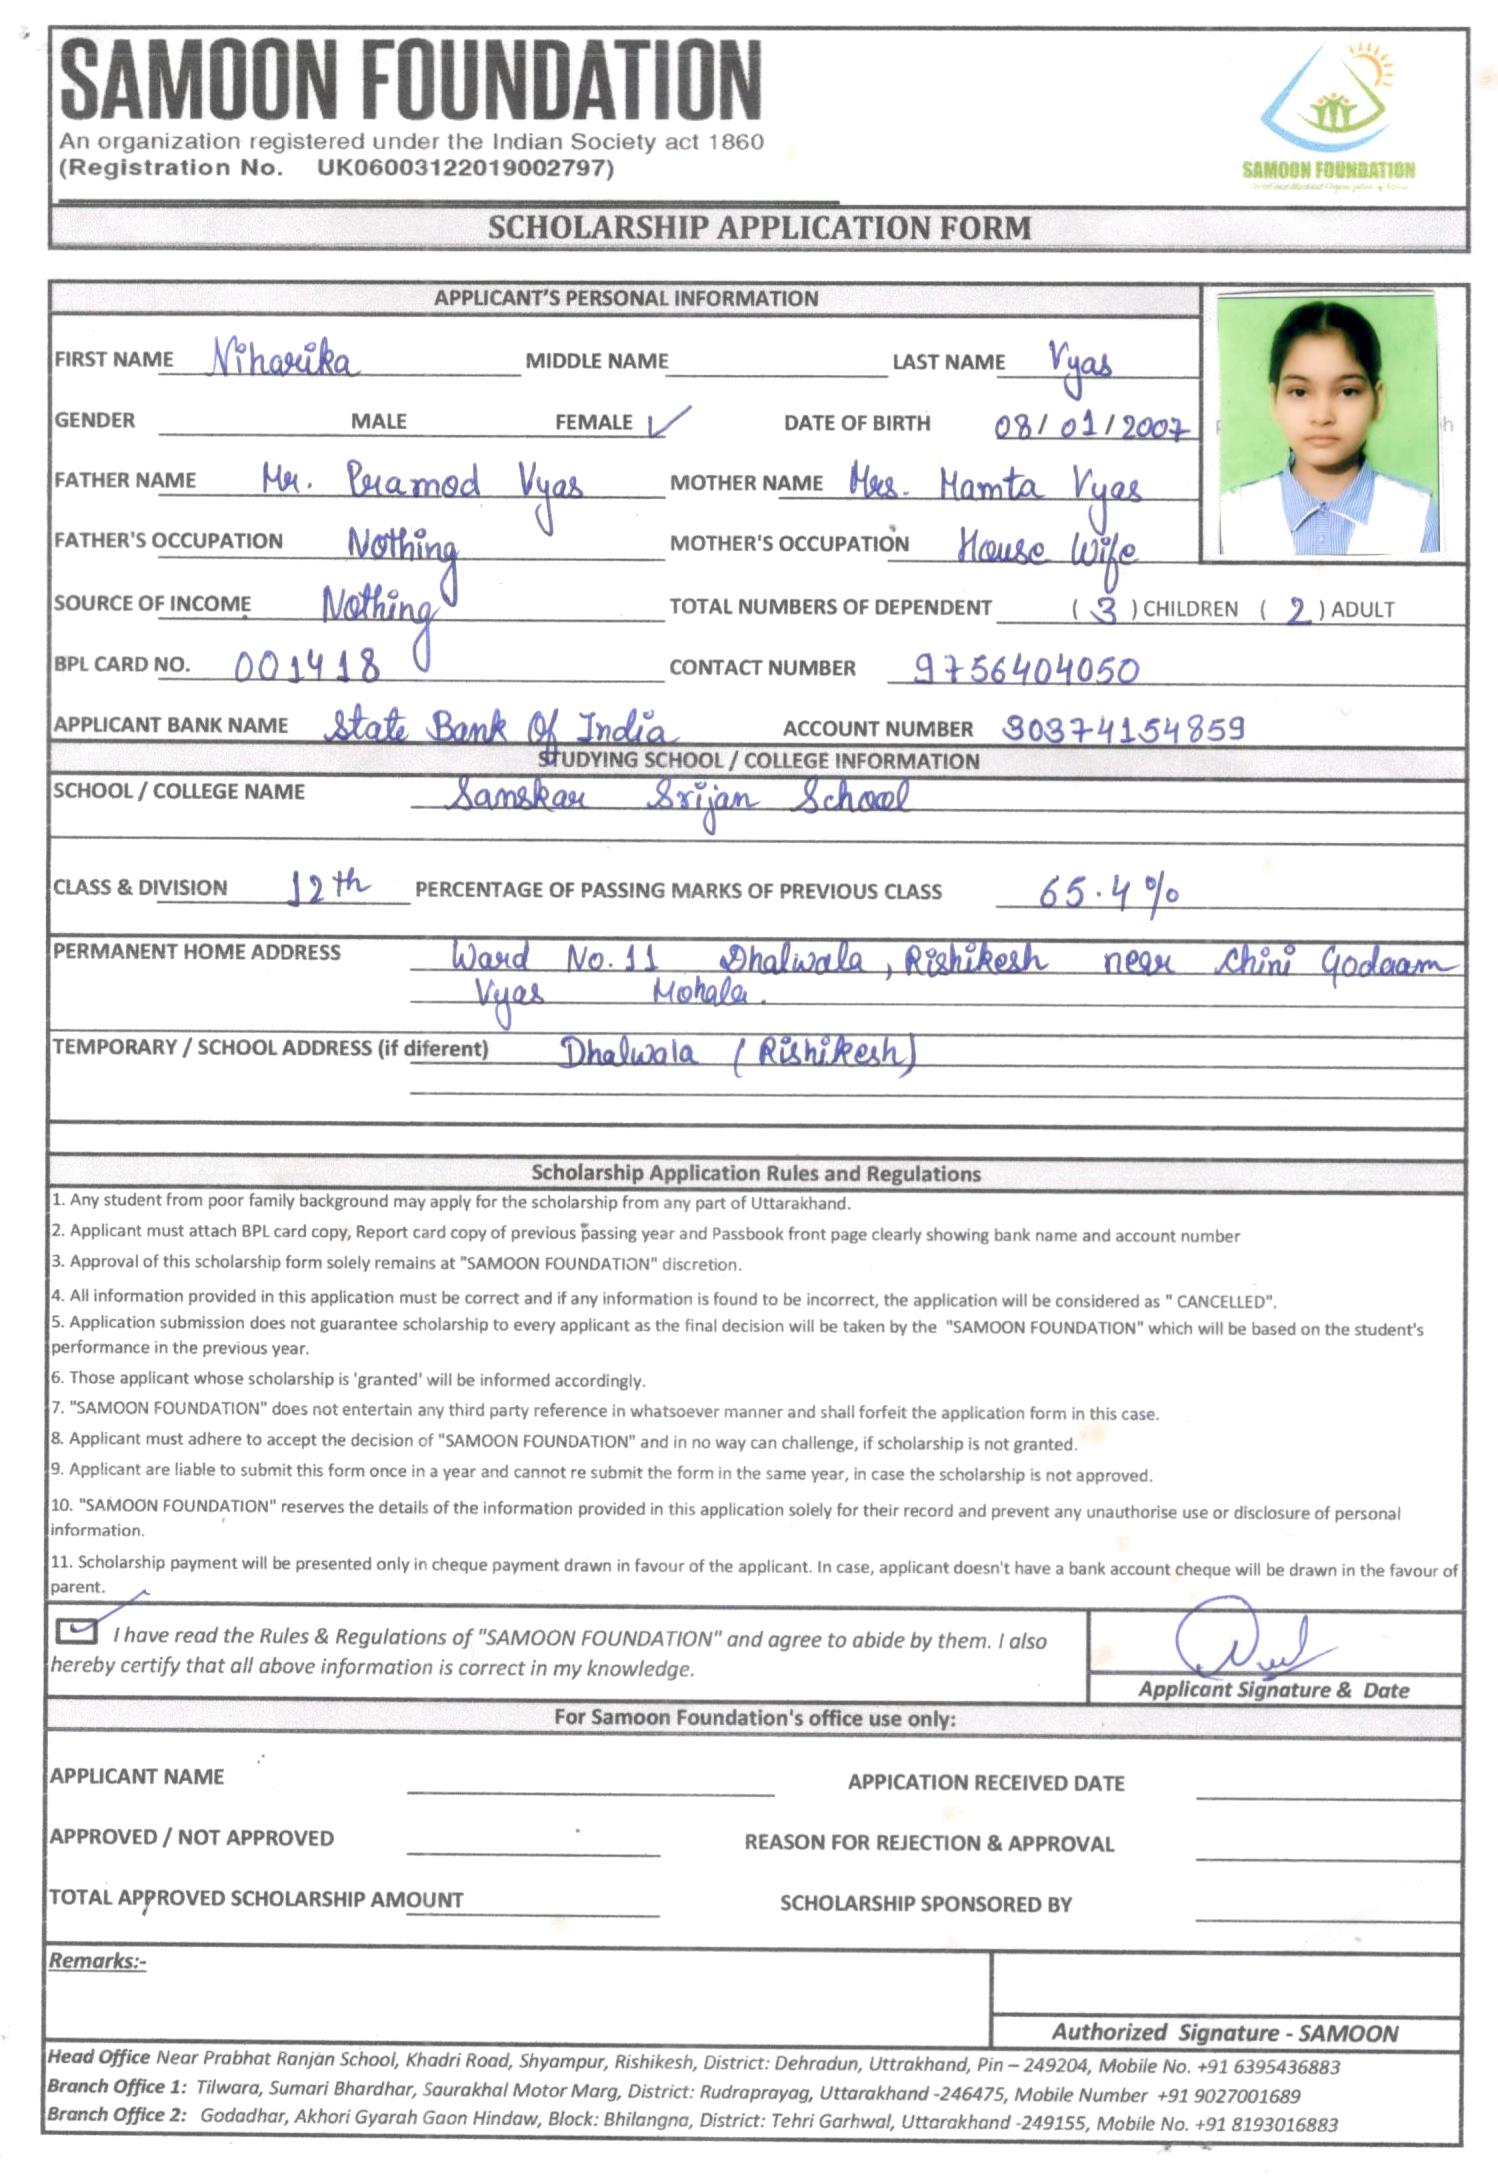 SAMOON FOUNDATION
An organization registered under the Indian Society act 1860
(Registration No. UK06003122019002797)
SAMOON FOUNDATION
SCHOLARSHIP APPLICATION FORM
APPLICANT'S PERSONAL INFORMATION
FIRST NAME Niharika MIDDLE NAME LAST NAME Vyas
GENDER MALE FEMALE ✓ DATE OF BIRTH 08/01/2007
FATHER NAME Mr. Pramod Vyas MOTHER NAME Mrs. Mamta Vyas
FATHER'S OCCUPATION Nothing MOTHER'S OCCUPATION House Wife
SOURCE OF INCOME Nothing TOTAL NUMBERS OF DEPENDENT ( 3 ) CHILDREN ( 2 ) ADULT
BPL CARD NO. 001418 CONTACT NUMBER 9756404050
APPLICANT BANK NAME State Bank Of India ACCOUNT NUMBER 30374154859
STUDYING SCHOOL / COLLEGE INFORMATION
SCHOOL / COLLEGE NAME Sanskar Srijan School
CLASS & DIVISION 12th PERCENTAGE OF PASSING MARKS OF PREVIOUS CLASS 65.4%
PERMANENT HOME ADDRESS Ward No. 11 Dhalwala, Rishikesh near Chini Godaam
Vyas Mohala.
TEMPORARY / SCHOOL ADDRESS (if diferent) Dhalwala (Rishikesh)
Scholarship Application Rules and Regulations
1. Any student from poor family background may apply for the scholarship from any part of Uttarakhand.
2. Applicant must attach BPL card copy, Report card copy of previous passing year and Passbook front page clearly showing bank name and account number
3. Approval of this scholarship form solely remains at "SAMOON FOUNDATION" discretion.
4. All information provided in this application must be correct and if any information is found to be incorrect, the application will be considered as " CANCELLED".
5. Application submission does not guarantee scholarship to every applicant as the final decision will be taken by the "SAMOON FOUNDATION" which will be based on the student's
performance in the previous year.
6. Those applicant whose scholarship is 'granted' will be informed accordingly.
7. "SAMOON FOUNDATION" does not entertain any third party reference in whatsoever manner and shall forfeit the application form in this case.
8. Applicant must adhere to accept the decision of "SAMOON FOUNDATION" and in no way can challenge, if scholarship is not granted.
9. Applicant are liable to submit this form once in a year and cannot re submit the form in the same year, in case the scholarship is not approved.
10. "SAMOON FOUNDATION" reserves the details of the information provided in this application solely for their record and prevent any unauthorise use or disclosure of personal
information.
11. Scholarship payment will be presented only in cheque payment drawn in favour of the applicant. In case, applicant doesn't have a bank account cheque will be drawn in the favour of
parent.
I have read the Rules & Regulations of "SAMOON FOUNDATION" and agree to abide by them. I also
hereby certify that all above information is correct in my knowledge.
Applicant Signature & Date
For Samoon Foundation's office use only:
APPLICANT NAME APPICATION RECEIVED DATE
APPROVED / NOT APPROVED REASON FOR REJECTION & APPROVAL
TOTAL APPROVED SCHOLARSHIP AMOUNT SCHOLARSHIP SPONSORED BY
Remarks:-
Authorized Signature - SAMOON
Head Office Near Prabhat Ranjan School, Khadri Road, Shyampur, Rishikesh, District: Dehradun, Uttrakhand, Pin – 249204, Mobile No. +91 6395436883
Branch Office 1: Tilwara, Sumari Bhardhar, Saurakhal Motor Marg, District: Rudraprayag, Uttarakhand -246475, Mobile Number +91 9027001689
Branch Office 2: Godadhar, Akhori Gyarah Gaon Hindaw, Block: Bhilangna, District: Tehri Garhwal, Uttarakhand -249155, Mobile No. +91 8193016883